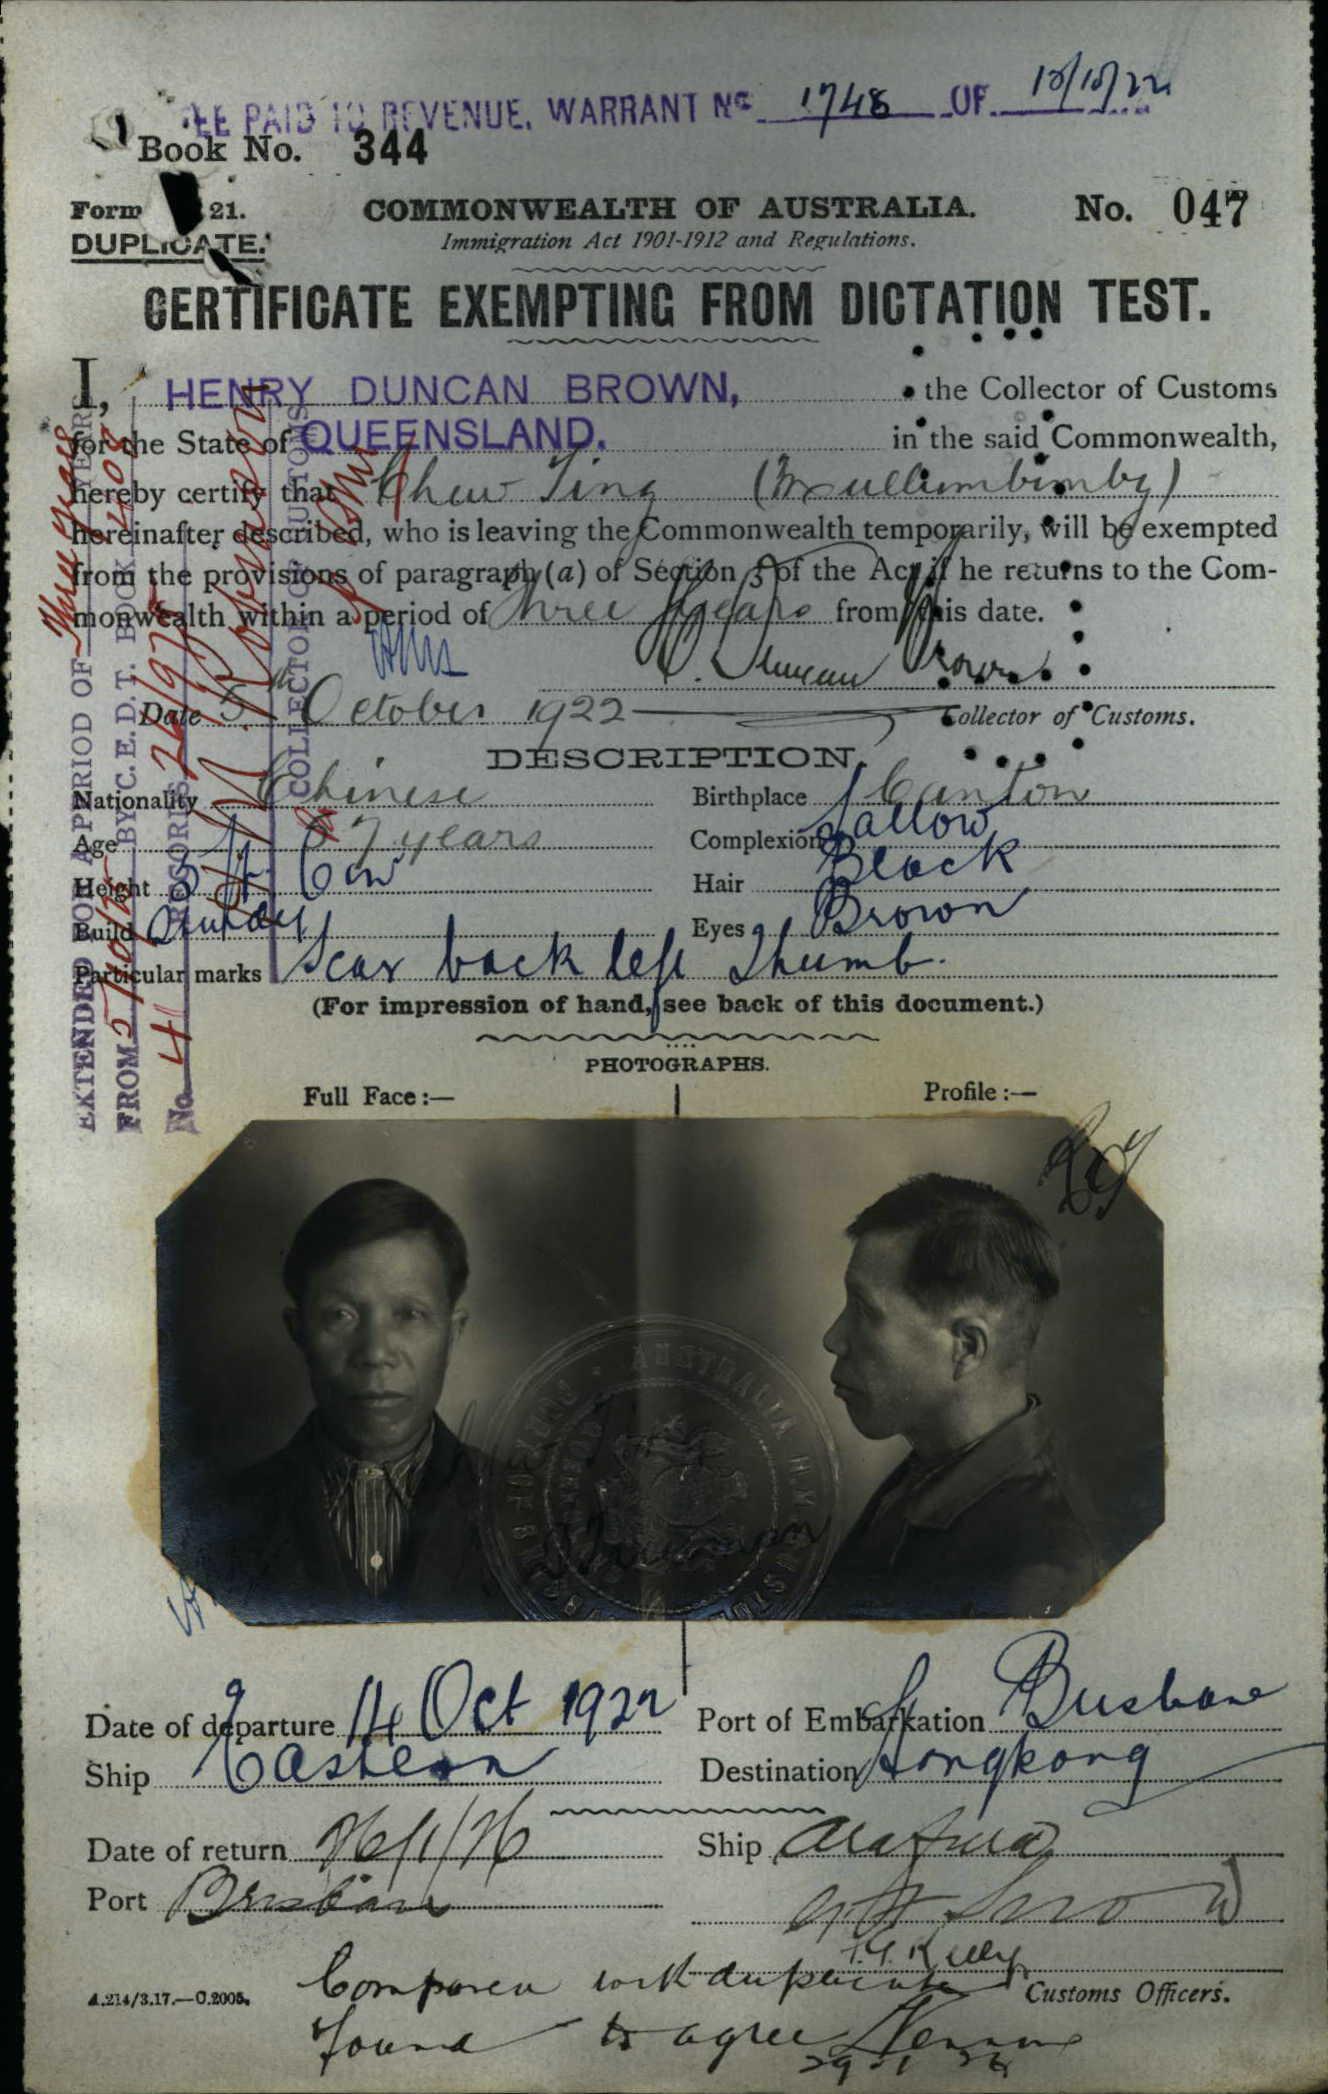 FEE PAID TO REVENUE, WARRANT No 1748 OF 10/10/22
Book No. 344
Form 21. COMMONWEALTH OF AUSTRALIA. No. 047
DUPLICATE. Immigration Act 1901-1912 and Regulations.
CERTIFICATE EXEMPTING FROM DICTATION TEST.
I, HENRY DUNCAN BROWN, the Collector of Customs
for the State of QUEENSLAND. in the said Commonwealth,
hereby certify that Chew Ting (Mullumbimby)
hereinafter described, who is leaving the Commonwealth temporarily, will be exempted
from the provisions of paragraph (a) of Section 3 of the Act if he returns to the Com-
monwealth within a period of Three Years from this date.
H. Duncan Brown
Date 5th October 1922 Collector of Customs.
DESCRIPTION.
Nationality Chinese Birthplace Canton
Age 37 years Complexion Sallow
Height 5 ft 6 in Hair Black
Build Eyes Brown
Particular marks Scar back left Thumb.
(For impression of hand, see back of this document.)
PHOTOGRAPHS.
Full Face :— Profile :—
EXTENDED FOR A PERIOD OF Three years YEARS
FROM 5/10/25 BY C.E.D.T. BOOK 408
No. 4
COLLECTOR OF CUSTOMS
AUSTRALIA H.M. CUSTOMS
Date of departure 14 Oct 1922 Port of Embarkation Brisbane
Ship Eastern Destination Hongkong
Date of return 26/1/26 Ship Arafura
Port Brisbane
Customs Officers.
Compared with duplicate
A.214/3.17.—C.2005.
Found to agree
29 1 26